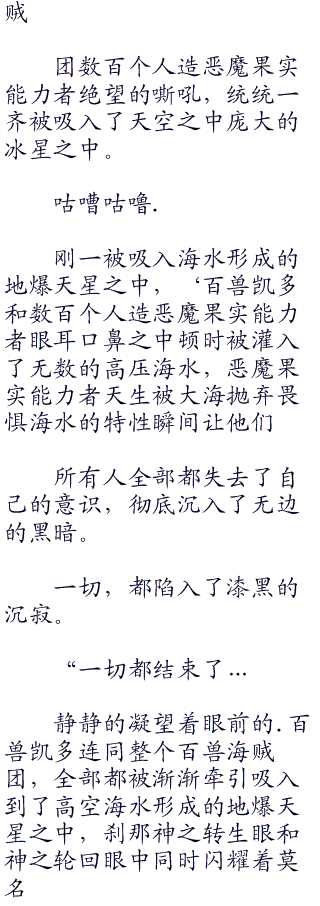 贼
团数百个人造恶魔果实
能力者绝望的嘶吼，统统一
齐被吸入了天空之中庞大的
冰星之中。
咕嘈咕噜.
刚一被吸入海水形成的
地爆天星之中，‘百兽凯多
和数百个人造恶魔果实能力
者眼耳口鼻之中顿时被灌入
了无数的高压海水，恶魔果
实能力者天生被大海抛弃畏
惧海水的特性瞬间让他们
所有人全部都失去了自
己的意识，彻底沉入了无边
的黑暗。
一切，都陷入了漆黑的
沉寂。
“一切都结束了…
静静的凝望着眼前的.百
兽凯多连同整个百兽海贼
团，全部都被渐渐牵引吸入
到了高空海水形成的地爆天
星之中，刹那神之转生眼和
神之轮回眼中同时闪耀着莫
名